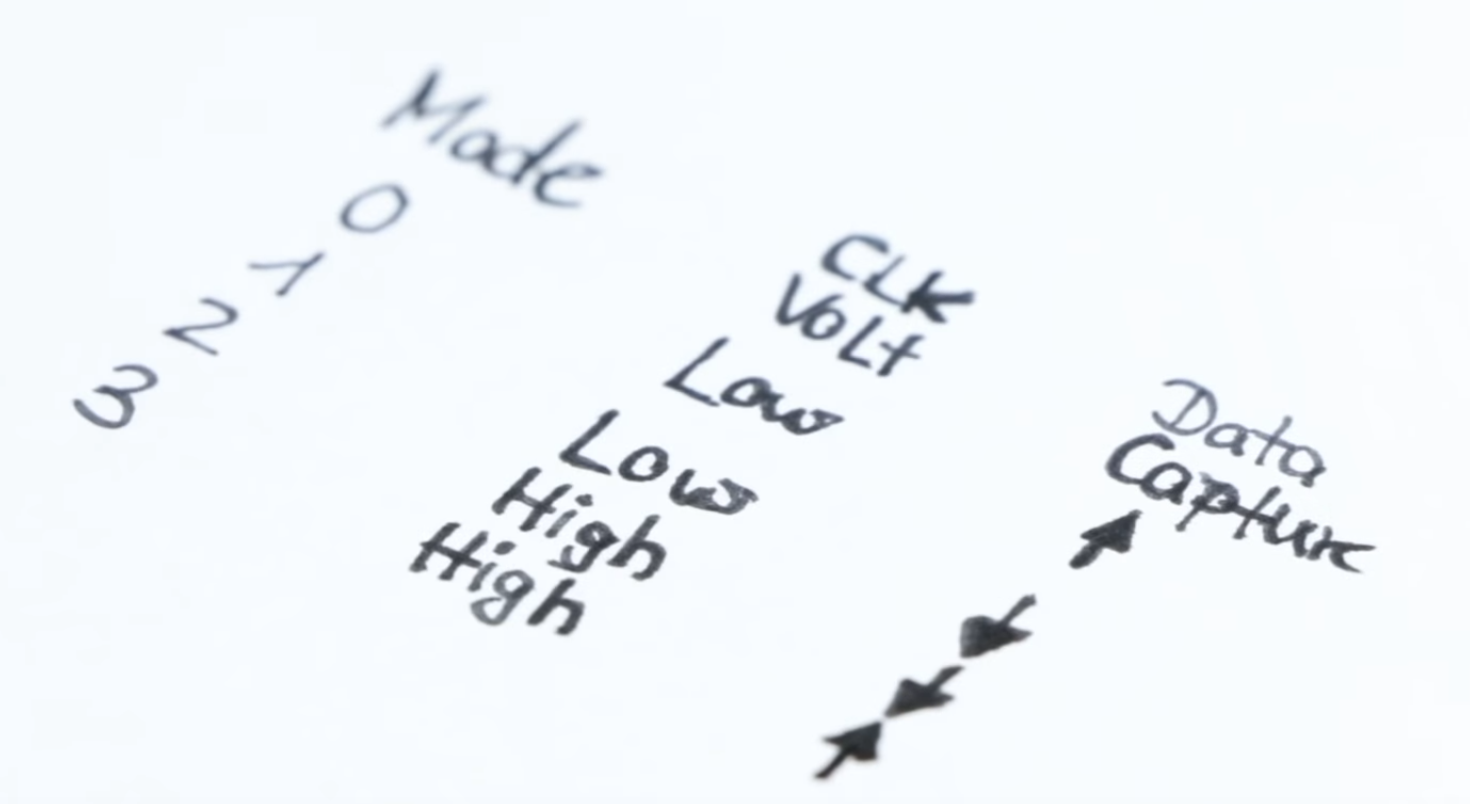 Mode
CLK
Volt
Data
Capture
0 Low ↑
1 Low ↓
2 High ↓
3 High ↑